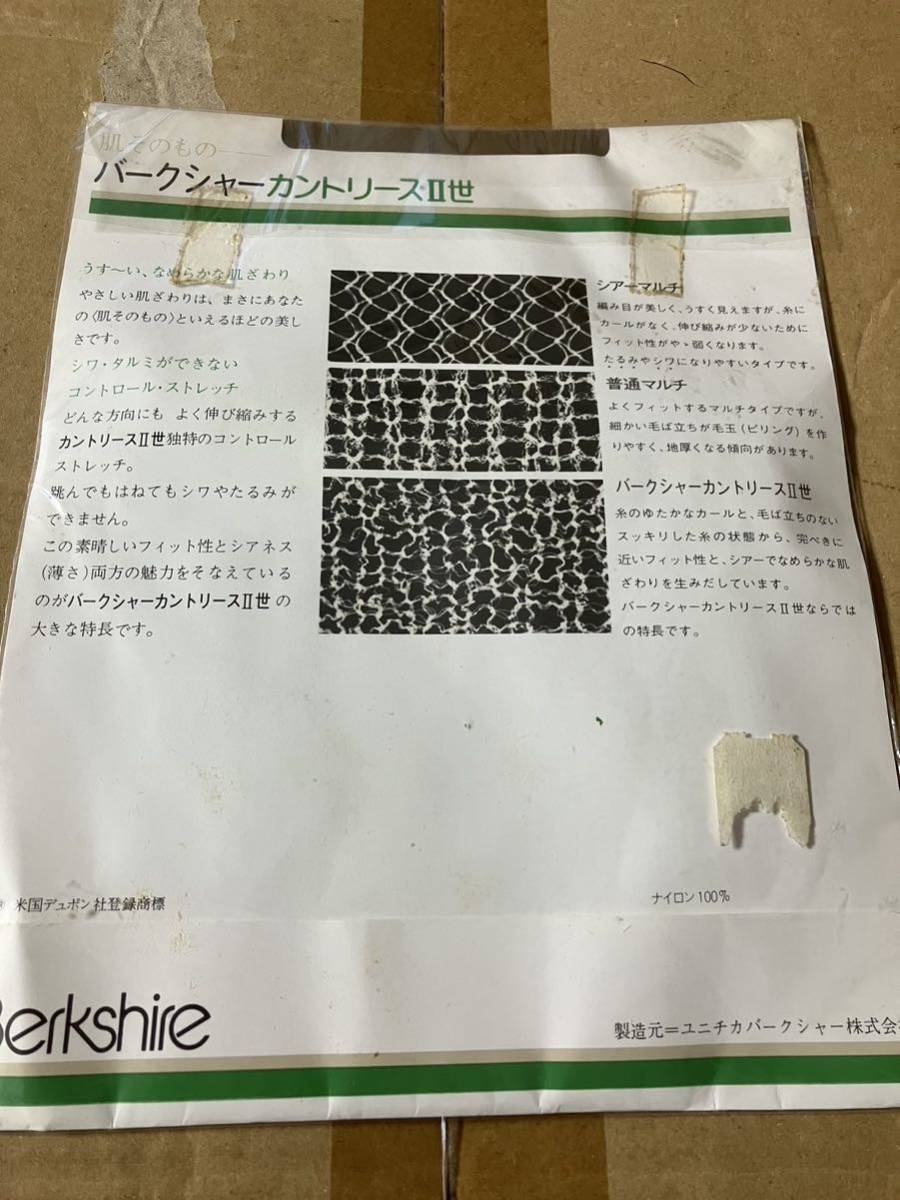 肌そのもの——
バークシャーカントリースII世
うす〜い、なめらかな肌ざわり
やさしい肌ざわりは、まさにあなた
の〈肌そのもの〉といえるほどの美し
さです。
シワ・タルミができない
コントロール・ストレッチ
どんな方向にも よく伸び縮みする
カントリースII世独特のコントロール
ストレッチ。
跳んでもはねてもシワやたるみが
できません。
この素晴しいフィット性とシアネス
(薄さ)両方の魅力をそなえている
のがバークシャーカントリースII世の
大きな特長です。
シアーマルチ
編み目が美しく、うすく見えますが、糸に
カールがなく、伸び縮みが少ないために
フィット性がやゝ弱くなります。
たるみやシワになりやすいタイプです。
普通マルチ
よくフィットするマルチタイプですが、
細かい毛ば立ちが毛玉(ピリング)を作
りやすく、地厚くなる傾向があります。
バークシャーカントリースII世
糸のゆたかなカールと、毛ば立ちのない
スッキリした糸の状態から、完ぺきに
近いフィット性と、シアーでなめらかな肌
ざわりを生みだしています。
バークシャーカントリースII世ならでは
の特長です。
米国デュポン社登録商標
ナイロン100%
Berkshire
製造元=ユニチカバークシャー株式会社